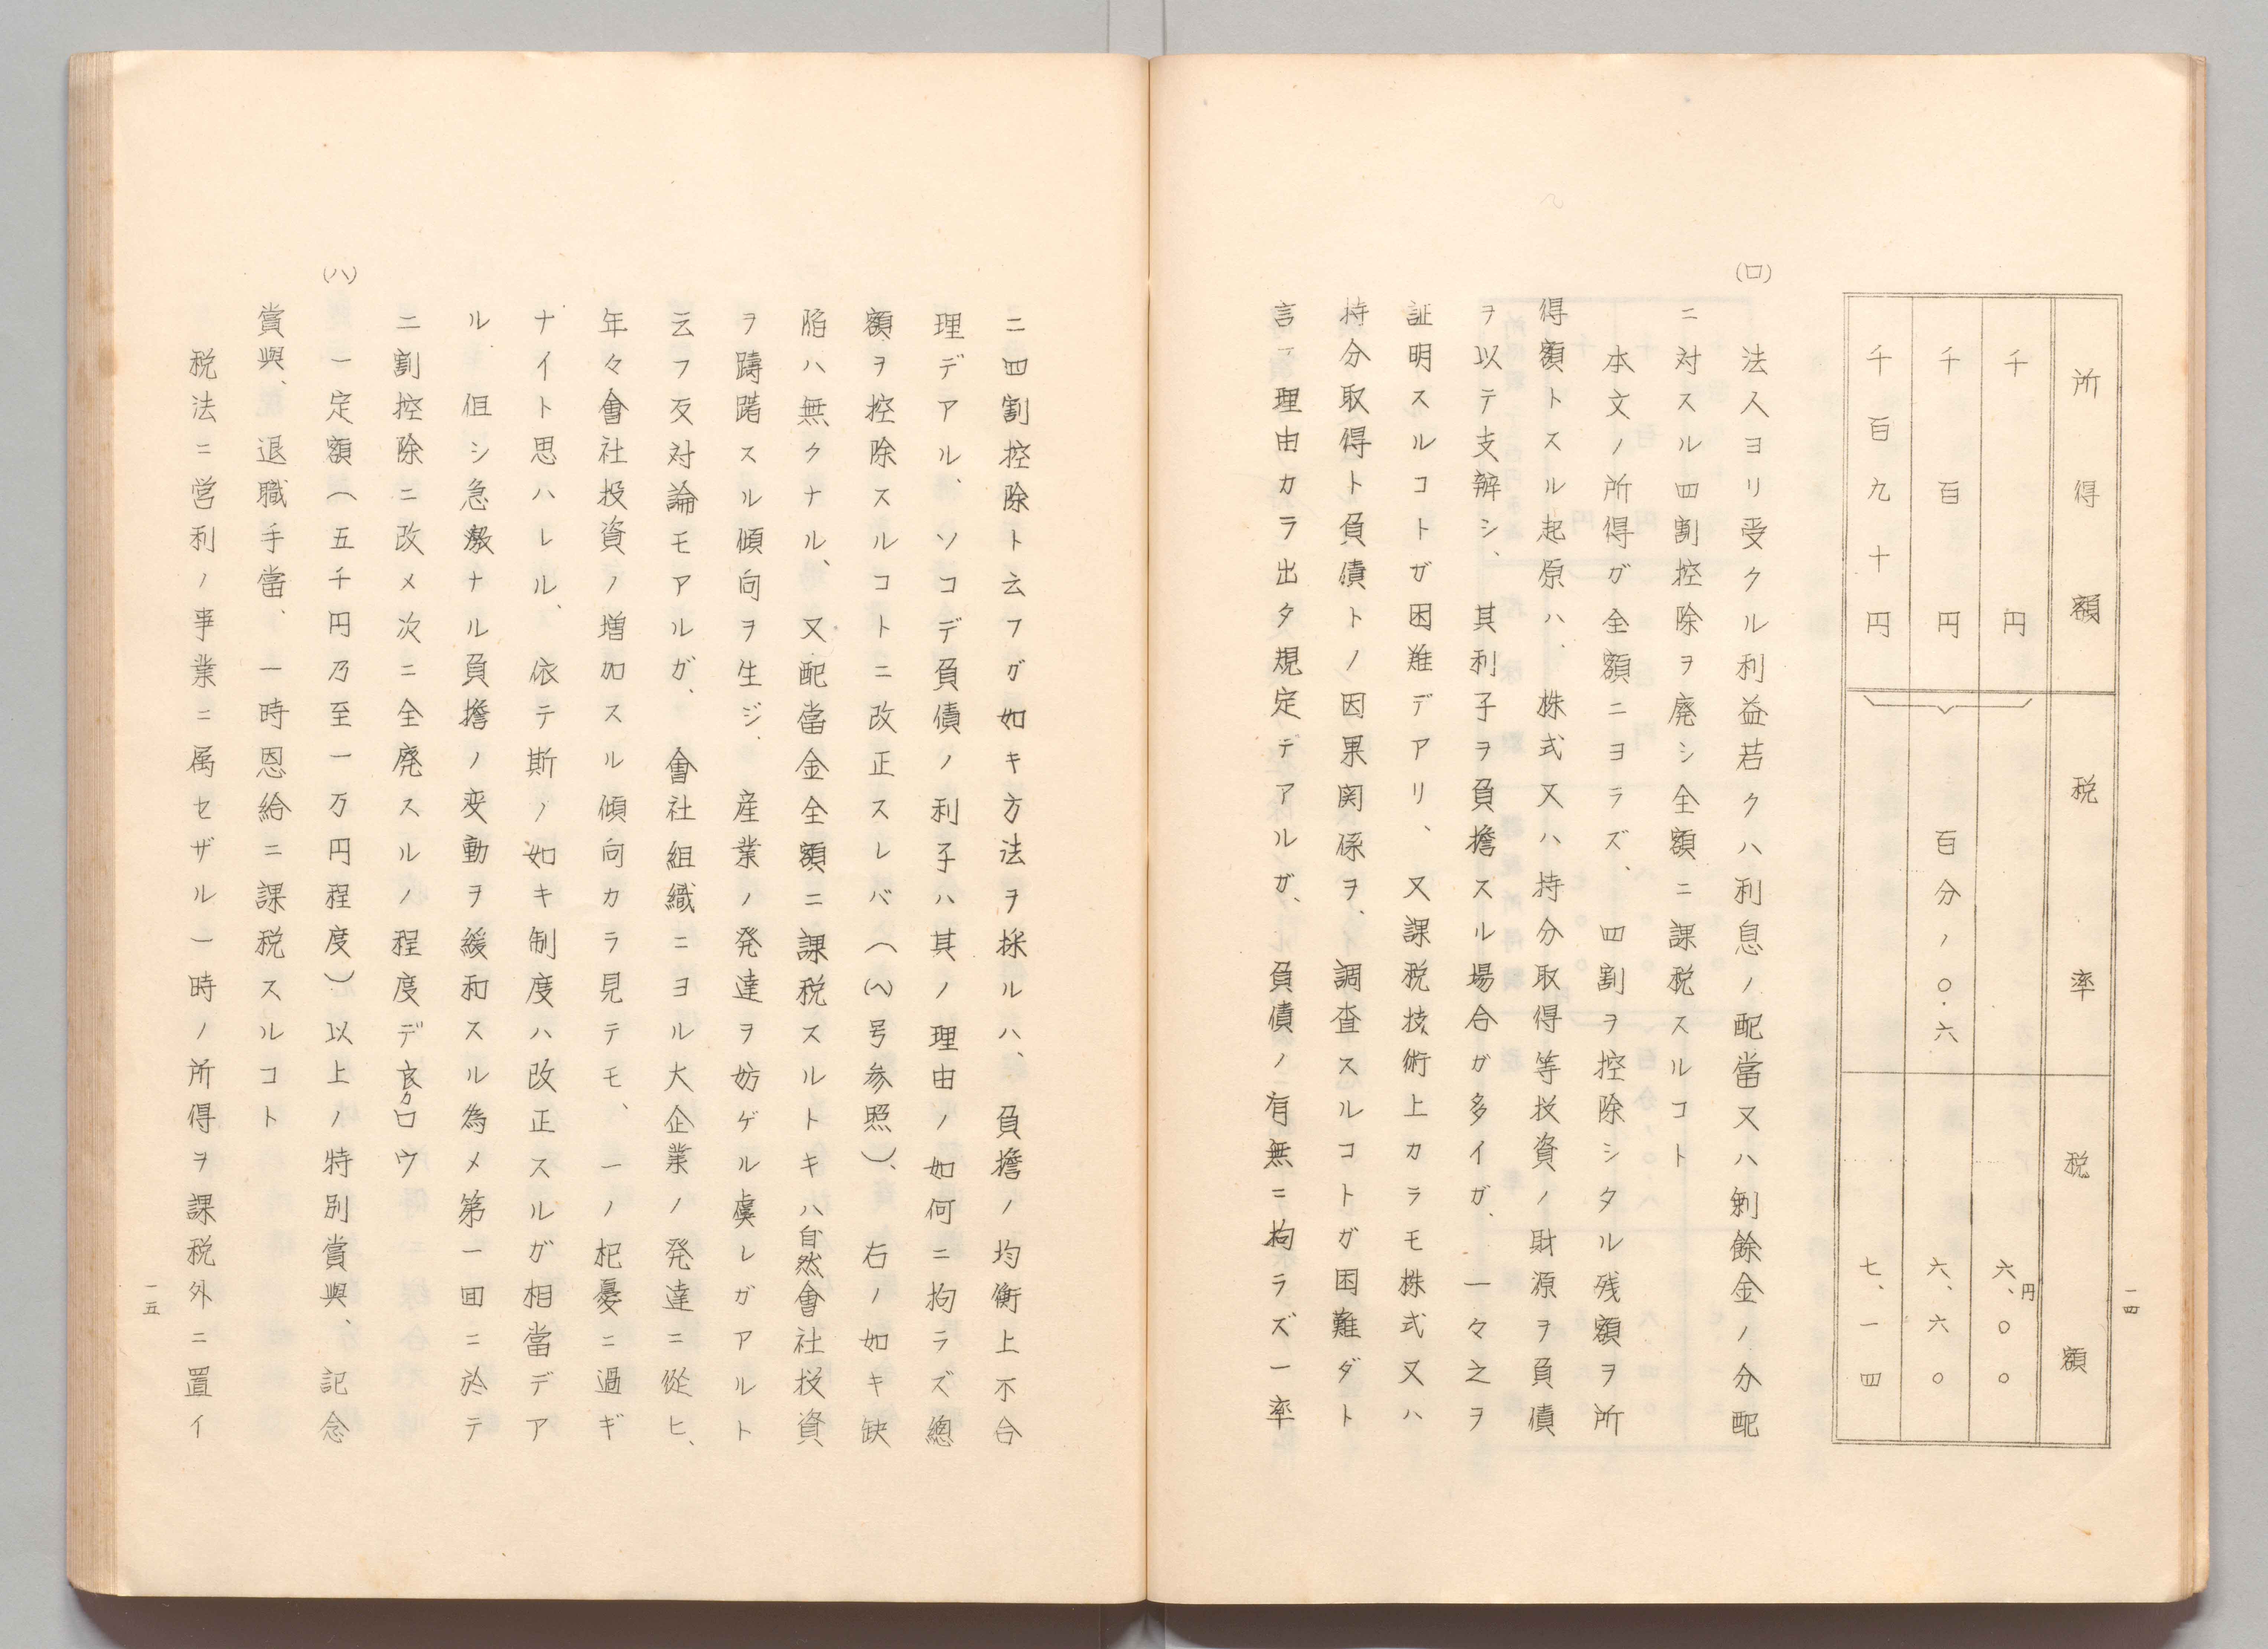 一四
所得額　税率　税額
千円　百分ノ〇.六　六、〇〇円
千百円　六、六〇
千百九十円　七、一四
(ロ)　法人ヨリ受クル利益若クハ利息ノ配當又ハ剰餘金ノ分配
ニ対スル四割控除ヲ廃シ全額ニ課税スルコト
本文ノ所得ガ全額ニヨラズ、四割ヲ控除シタル残額ヲ所
得額トスル起原ハ、株式又ハ持分取得等投資ノ財源ヲ負債
ヲ以テ支辨シ、其利子ヲ負擔スル場合ガ多イガ、一々之ヲ
証明スルコトガ困難デアリ、又課税技術上カラモ株式又ハ
持分取得ト負債トノ因果関係ヲ、調査スルコトガ困難ダト
言フ理由カラ出タ規定デアルガ、負債ノ有無ニ拘ラズ一率
ニ四割控除ト云フガ如キ方法ヲ採ルハ、負擔ノ均衡上不合
理デアル、ソコデ負債ノ利子ハ其ノ理由ノ如何ニ拘ラズ總
額ヲ控除スルコトニ改正スレバ（(ヘ)号参照）、右ノ如キ缺
陥ハ無クナル、又配當金全額ニ課税スルトキハ自然會社投資
ヲ躊躇スル傾向ヲ生ジ、産業ノ発達ヲ妨ゲル虞レガアルト
云フ反対論モアルガ、會社組織ニヨル大企業ノ発達ニ從ヒ、
年々會社投資ノ増加スル傾向カラ見テモ、一ノ杞憂ニ過ギ
ナイト思ハレル、依テ斯ノ如キ制度ハ改正スルガ相當デア
ル　但シ急激ナル負擔ノ変動ヲ緩和スル為メ第一回ニ於テ
二割控除ニ改メ次ニ全廃スルノ程度デ良カロウ
(ハ)　一定額（五千円乃至一万円程度）以上ノ特別賞與、記念
賞與、退職手當、一時恩給ニ課税スルコト
税法ニ営利ノ事業ニ属セザル一時ノ所得ヲ課税外ニ置イ
一五